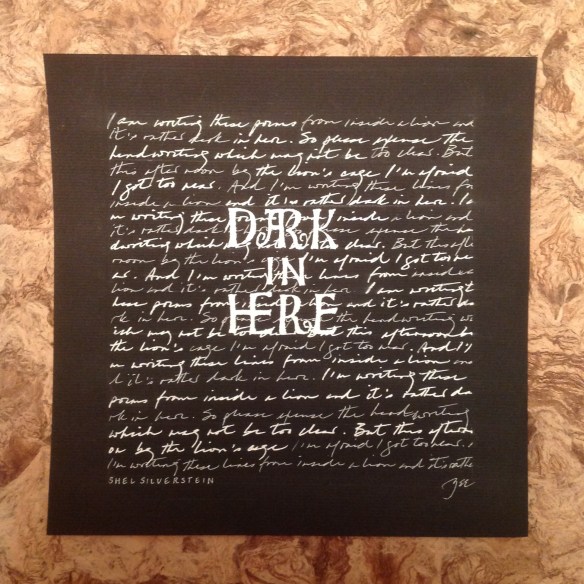 I am writing these poems from inside a lion and
it's rather dark in here. So please excuse the
handwriting which may not be too clear. But
this afternoon by the lion's cage I'm afraid
I got too near. And I'm writing these lines fro
inside a lion and it's rather dark in here. I
m writing these inside a lion and
it's rather excuse the ha
dwriting which clear. But this afte
noon by the I'm afraid I got too ne
ar. And I'm writing these lines from inside a
lion and it's rather dark in here. I am writing t
hese poems from lion and it's rather da
rk in here. So the handwriting wh
ich may not be But this afternoon by
the lion's cage I'm afraid I got too near. And I'
m writing these lines from inside a lion and
it's rather dark in here. I'm writing these
poems from inside a lion and it's rather da
rk in here. So please excuse the handwriting
which may not be too clear. But this aftern
oon by the lion's cage I'm afraid I got too near.
I'm writing these lines from inside a lion and it's rathe
DARK
IN
HERE
SHEL SILVERSTEIN